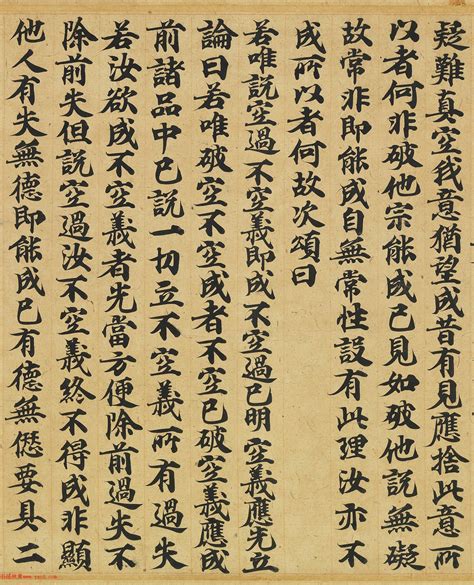 疑難真空我意猶望成昔有見應捨此意所
以者何非破他宗能成己見如破他說無礙
故常非即能成自無常性設有此理汝亦不
成所以者何故次頌曰
若唯說空過不空義即成不空過已明空義應先立
論曰若唯破空不空成者不空已破空義應成
前諸品中已說一切立不空義所有過失
若汝欲成不空義者先當方便除前過失不
除前失但說空過汝不空義終不得成非顯
他人有失無德即能成己有德無愆要具二